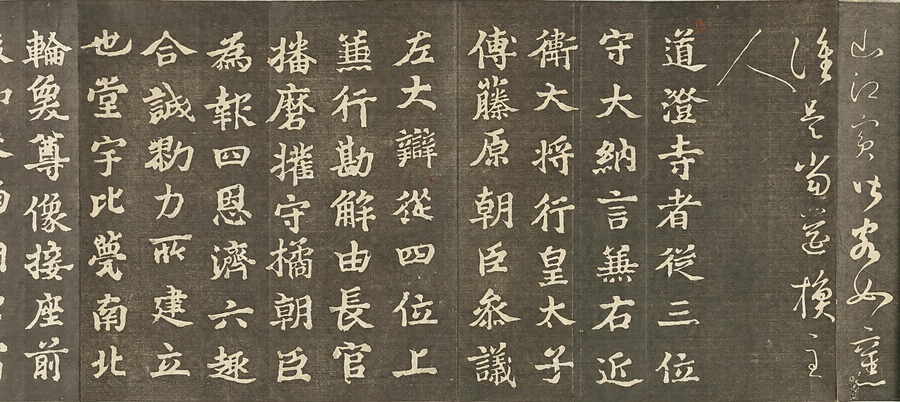 山江賓此
誰是當
換主
人
道澄寺者從三位
守大納言兼右近
衛大将行皇太子
傅藤原朝臣叅議
左大辯從四位上
兼行勘解由長官
播磨權守橘朝臣
為報四恩濟六趣
合誠勠力所建立
也堂宇比甍南北
輪奐尊像接座前